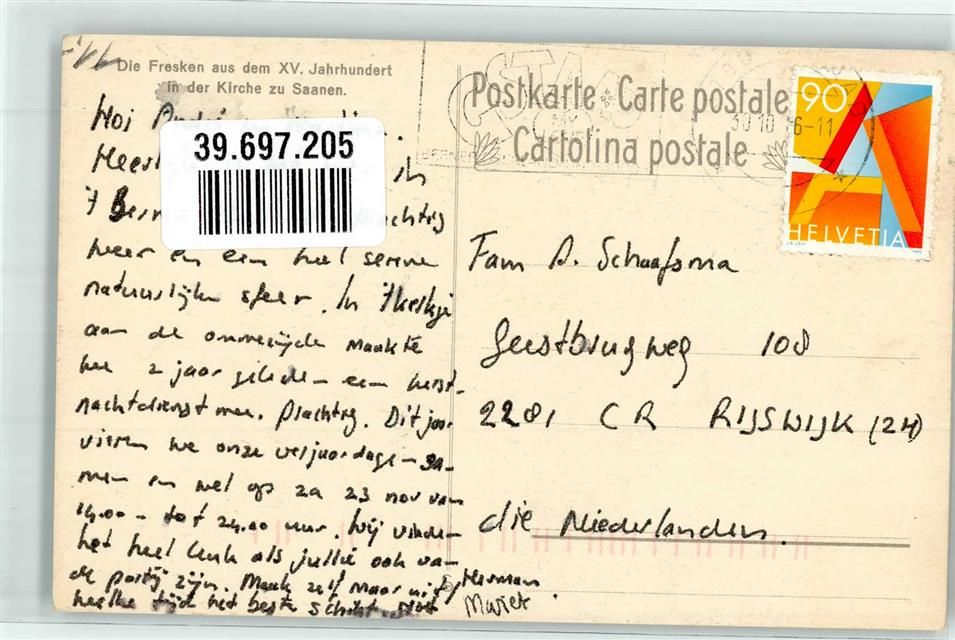 Die Fresken aus dem XV. Jahrhundert
in der Kirche zu Saanen.
Postkarte Carte postale
Cartolina postale
30 10 6-11
90
HELVETIA
39.697.205
Hoi
in
weer en een heel serene
natuurlijke sfeer. In 't kerkje
aan de ommezijde maakte
we 2 jaar gelede een kerst-
nachtdienst mee. Prachtig. Dit jaar
vieren we onze verjaardage sa-
men en wel op za 23 nov van
14.00 - tot 24.00 uur. Wij vinden
het heel leuk als jullie ook van
de partij zijn. Maak zelf maar uit
welke tijd het beste schikt
Herman
Mariek
Fam D. Schaafsma
Geestbrugweg 108
2281 CR RIJSWIJK (ZH)
die Niederlanden.